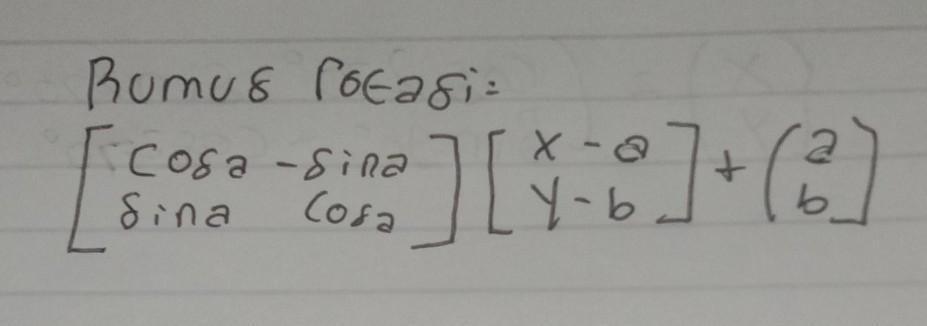 Rumus rotasi:
[cosa -sina] [x-a] + (a)
[sina cosa] [y-b] (b)